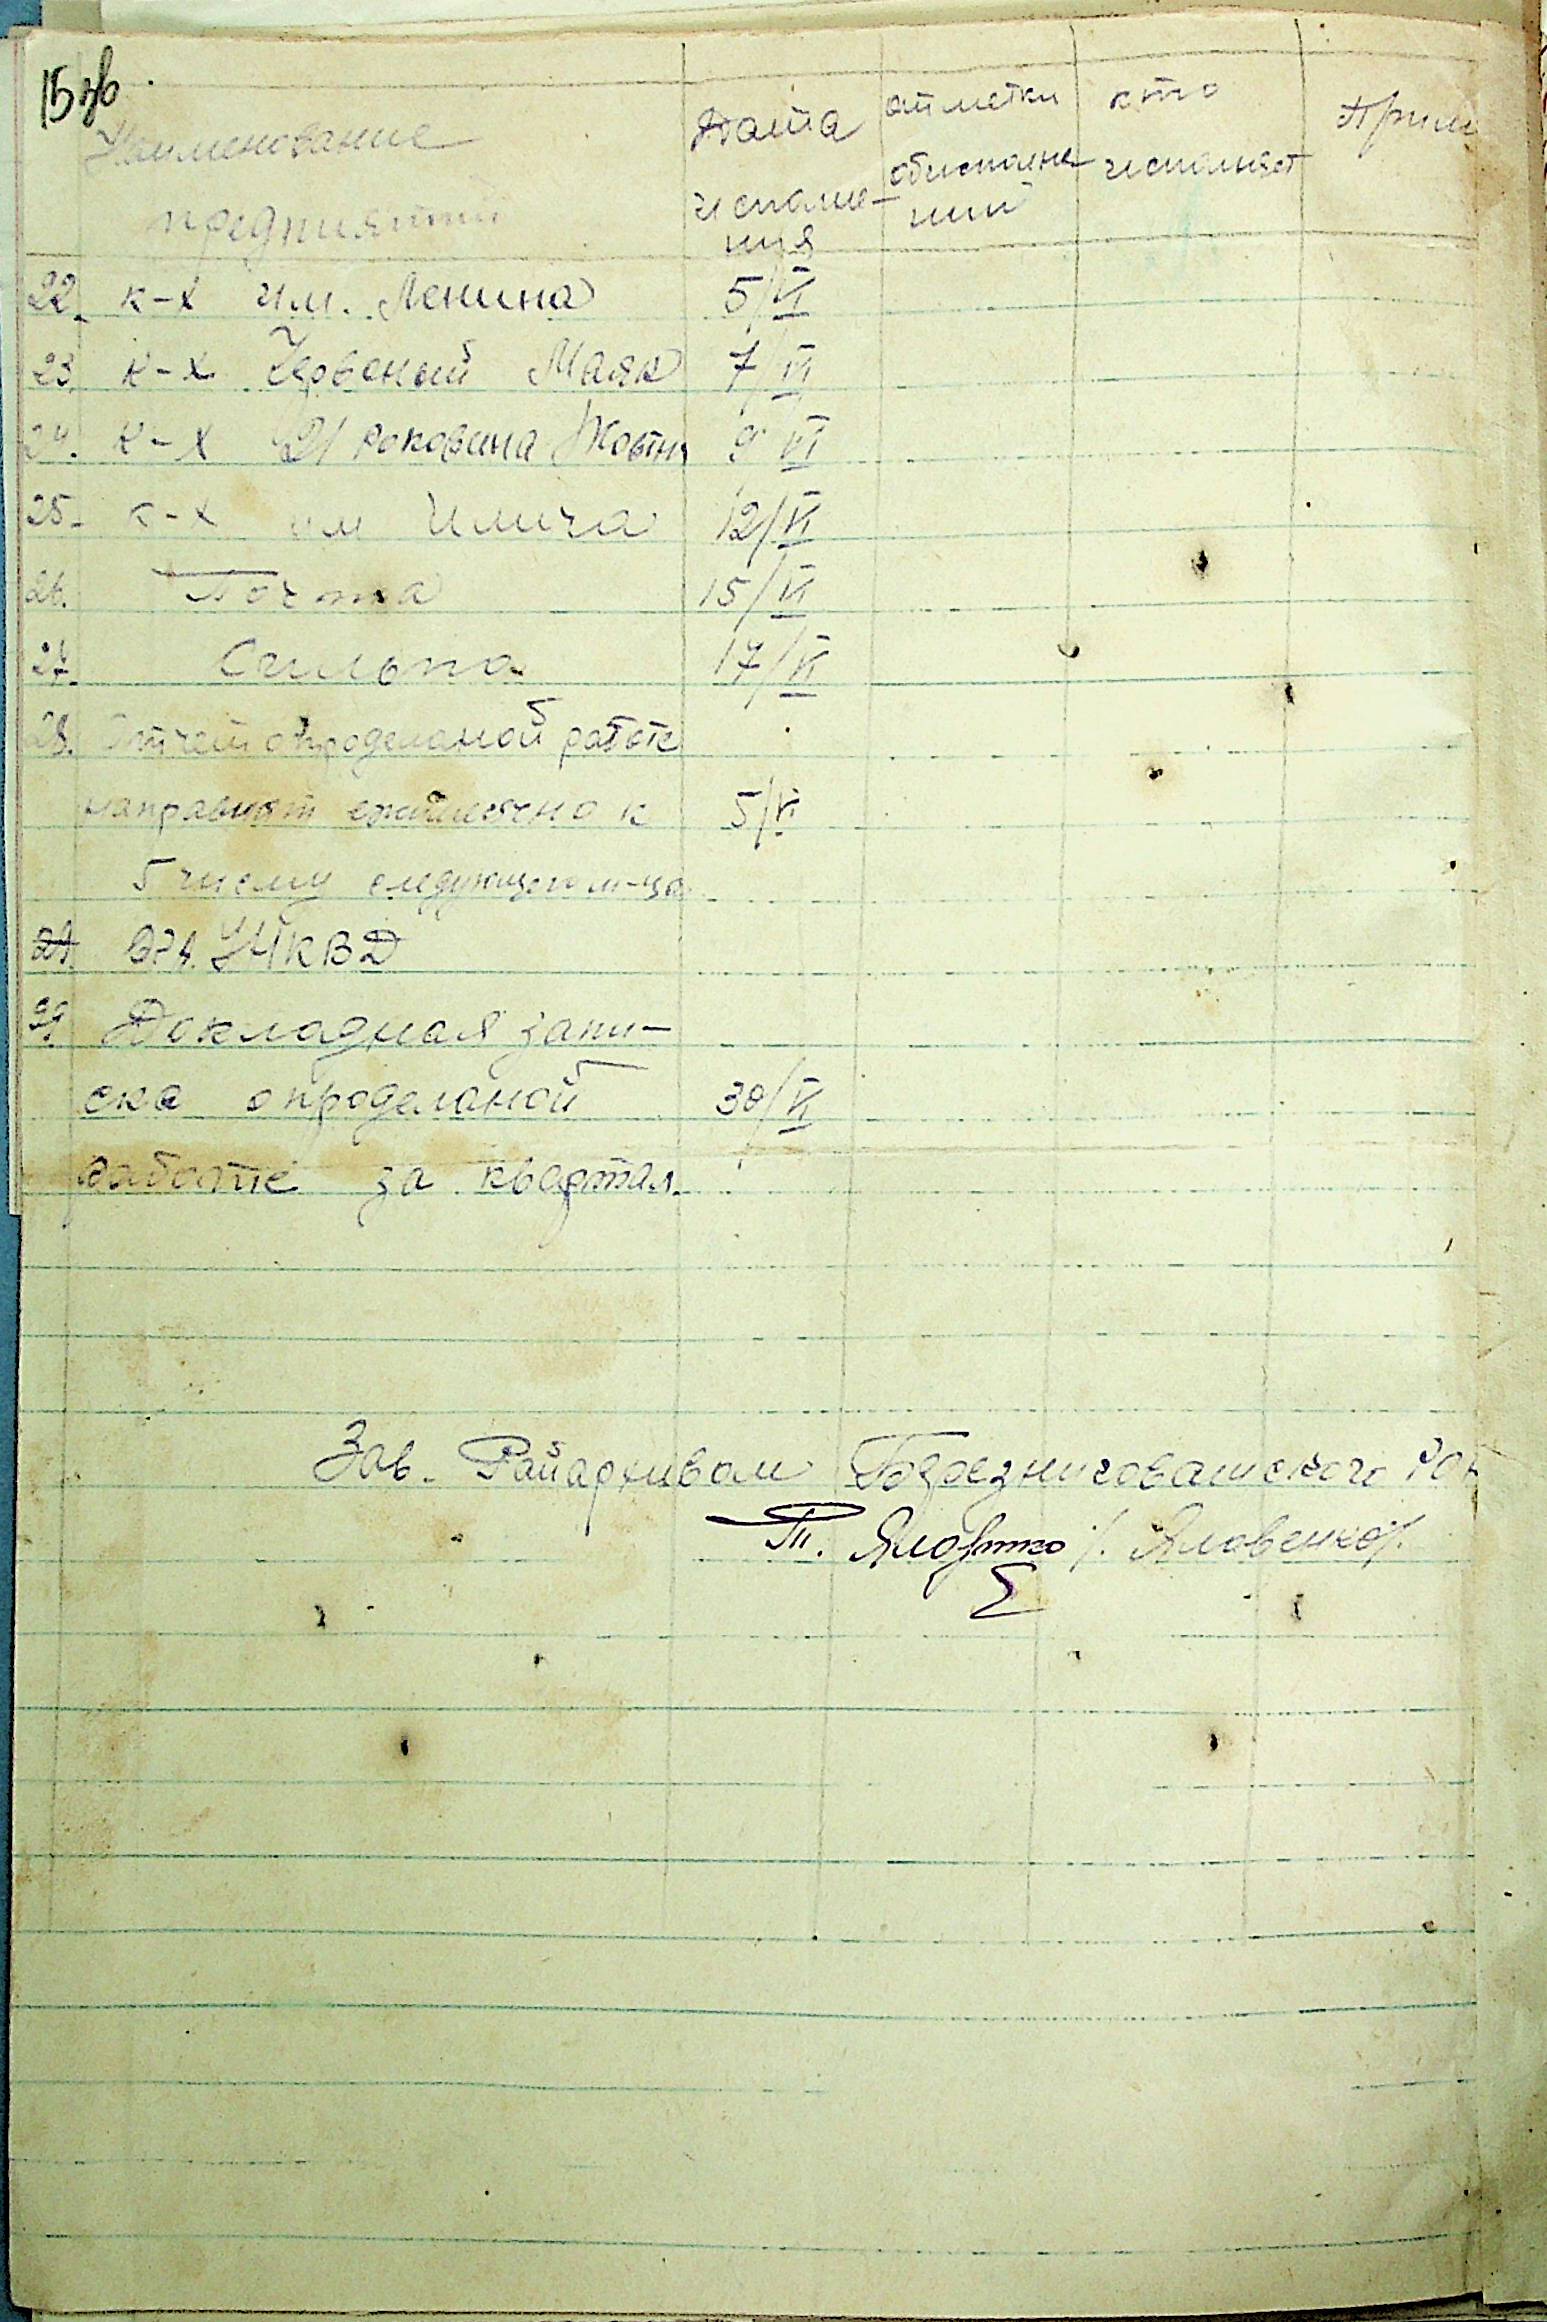 15 зв.
Наименование предприятий
Дата исполне-ния
отметки об исполне-нии
кто исполняет
Прим
22. к-х им. Ленина 5/VI
23. к-х Червоный Маяк 7/VI
24. к-х 21 роковина Жовтн 9 VI
25. к-х им Илича 12/VI
26. Почта 15/VI
27. Сильпо 17/VI
28. Отчет о проделаной работе
направлят ежемесячно к 5/VI
5 числу следующего м-ца
29. УНКВД
29. Докладная запи-
ска о проделаной 30/VI
работе за квартал.
Зав. Райархивом Березниговатского
Т. Яловенко /. Яловенко/.